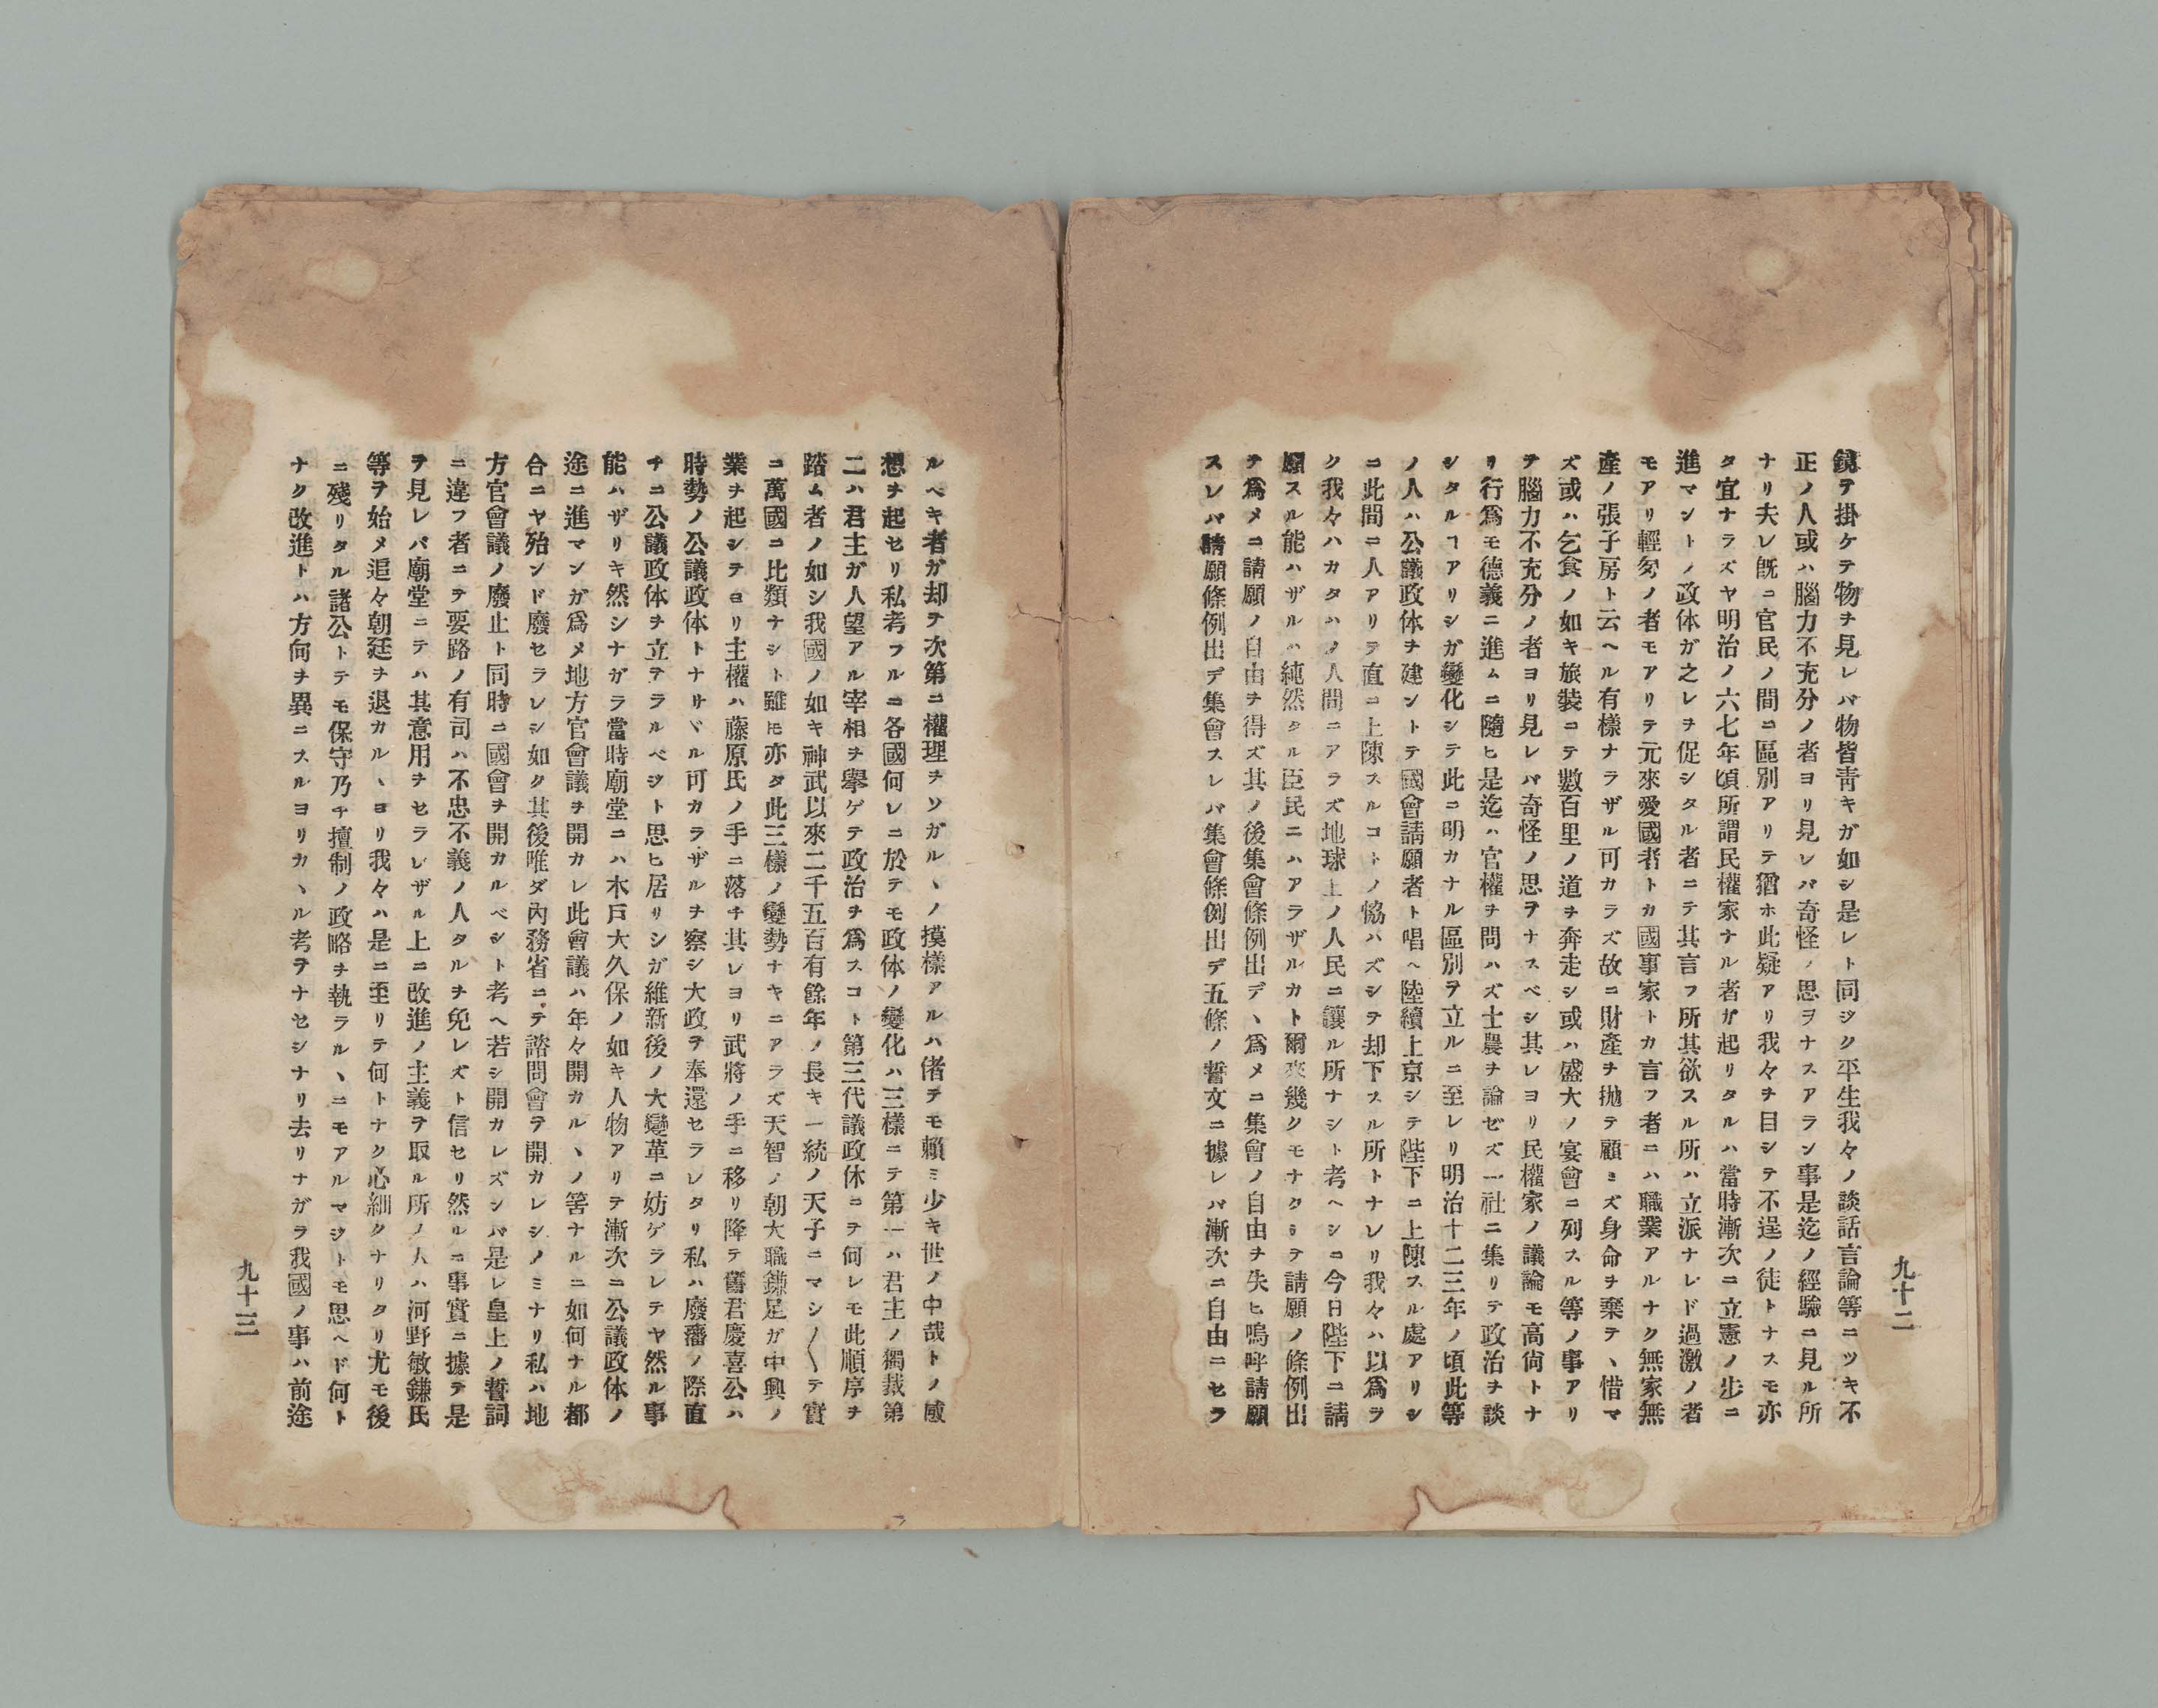 九十二
鏡ヲ掛ケテ物ヲ見レバ物皆靑キガ如シ是レト同ジク平生我々ノ談話言論等ニツキ不
正ノ人或ハ腦力不充分ノ者ヨリ見レバ奇怪ノ思ヲナスアラン事是迄ノ經驗ニ見ル所
ナリ夫レ旣ニ官民ノ間ニ區別アリテ猶ホ此疑アリ我々ヲ目シテ不逞ノ徒トナスモ亦
タ宜ナラズヤ明治ノ六七年頃所謂民權家ナル者ガ起リタルハ當時漸次ニ立憲ノ步ニ
進マントノ政体ガ之レヲ促シタル者ニテ其言フ所其欲スル所ハ立派ナレド過激ノ者
モアリ輕匆ノ者モアリテ元來愛國者トカ國事家トカ言フ者ニハ職業アルナク無家無
產ノ張子房ト云ヘル有樣ナラザル可カラズ故ニ財產ヲ抛テ顧ミズ身命ヲ棄テヽ惜マ
ズ或ハ乞食ノ如キ旅裝ニテ數百里ノ道ヲ奔走シ或ハ盛大ノ宴會ニ列スル等ノ事アリ
テ腦力不充分ノ者ヨリ見レバ奇怪ノ思ヲナスベシ其レヨリ民權家ノ議論モ高尙トナ
リ行爲モ德義ニ進ムニ隨ヒ是迄ハ官權ヲ問ハズ士農ヲ論ゼズ一社ニ集リテ政治ヲ談
ジタルヿアリシガ變化シテ此ニ明カナル區別ヲ立ルニ至レリ明治十二三年ノ頃此等
ノ人ハ公議政体ヲ建ントテ國會請願者ト唱ヘ陸續上京シテ陛下ニ上陳スル處アリシ
ニ此間ニ人アリテ直ニ上陳スルコトノ恊ハズシテ却下スル所トナレリ我々ハ以爲ラ
ク我々ハカタハノ人間ニアラズ地球上ノ人民ニ讓ル所ナシト考ヘシニ今日陛下ニ請
願スル能ハザルハ純然タル臣民ニハアラザルカト爾來幾クモナクシテ請願ノ條例出
テ爲メニ請願ノ自由ヲ得ズ其ノ後集會條例出デヽ爲メニ集會ノ自由ヲ失ヒ嗚呼請願
スレバ請願條例出デ集會スレバ集會條例出デ五條ノ誓文ニ據レバ漸次ニ自由ニセラ
ルベキ者ガ却テ次第ニ權理ヲソガルヽノ摸樣アルハ偖テモ賴ミ少キ世ノ中哉トノ感
想ヲ起セリ私考フルニ各國何レニ於テモ政体ノ變化ハ三樣ニテ第一ハ君主ノ獨裁第
二ハ君主ガ人望アル宰相ヲ擧ゲテ政治ヲ爲スコト第三代議政体ニテ何レモ此順序ヲ
踏ム者ノ如シ我國ノ如キ神武以來二千五百有餘年ノ長キ一統ノ天子ニマシ〱テ實
ニ萬國ニ比類ナシト雖モ亦タ此三樣ノ變勢ナキニアラズ天智ノ朝大職鎌足ガ中興ノ
業ヲ起シテヨリ主權ハ藤原氏ノ手ニ落チ其レヨリ武將ノ手ニ移リ降テ舊君慶喜公ハ
時勢ノ公議政体トナサヾル可カラザルヲ察シ大政ヲ奉還セラレタリ私ハ廢藩ノ際直
チニ公議政体ヲ立テラルベシト思ヒ居リシガ維新後ノ大變革ニ妨ゲラレテヤ然ル事
能ハザリキ然シナガラ當時廟堂ニハ木戸大久保ノ如キ人物アリテ漸次ニ公議政体ノ
途ニ進マンガ爲メ地方官會議ヲ開カレ此會議ハ年々開カルヽノ筈ナルニ如何ナル都
合ニヤ殆ンド廢セラレシ如ク其後唯ダ內務省ニテ諮問會ヲ開カレシノミナリ私ハ地
方官會議ノ廢止ト同時ニ國會ヲ開カルベシト考ヘ若シ開カレズンバ是レ皇上ノ誓詞
ニ違フ者ニテ要路ノ有司ハ不忠不義ノ人タルヲ免レズト信セリ然ルニ事實ニ據テ是
ヲ見レバ廟堂ニテハ其意用ヲセラレザル上ニ改進ノ主義ヲ取ル所ノ人ハ河野敏鎌氏
等ヲ始メ追々朝廷ヲ退カルヽヨリ我々ハ是ニ至リテ何トナク心細クナリタリ尤モ後
ニ殘リタル諸公トテモ保守乃チ擅制ノ政略ヲ執ラルヽニモアルマジトモ思ヘド何ト
ナク改進トハ方向ヲ異ニスルヨリカヽル考ヲナセシナリ去リナガラ我國ノ事ハ前途
九十三